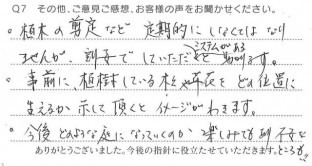 Q7 その他、ご意見ご感想、お客様の声をお聞かせください。
。植木の剪定など 定期的にしなくてはなり
ませんが、割安でしていただく システムがあると 助かります。
。事前に、植樹している木々や草花をどの位置に
生えるか示して頂くと イメージがわきます。
。今後どのような庭になっていくのか 楽しみでも
ありがとうございました。今後の指針に役立たせていただきます。ところも